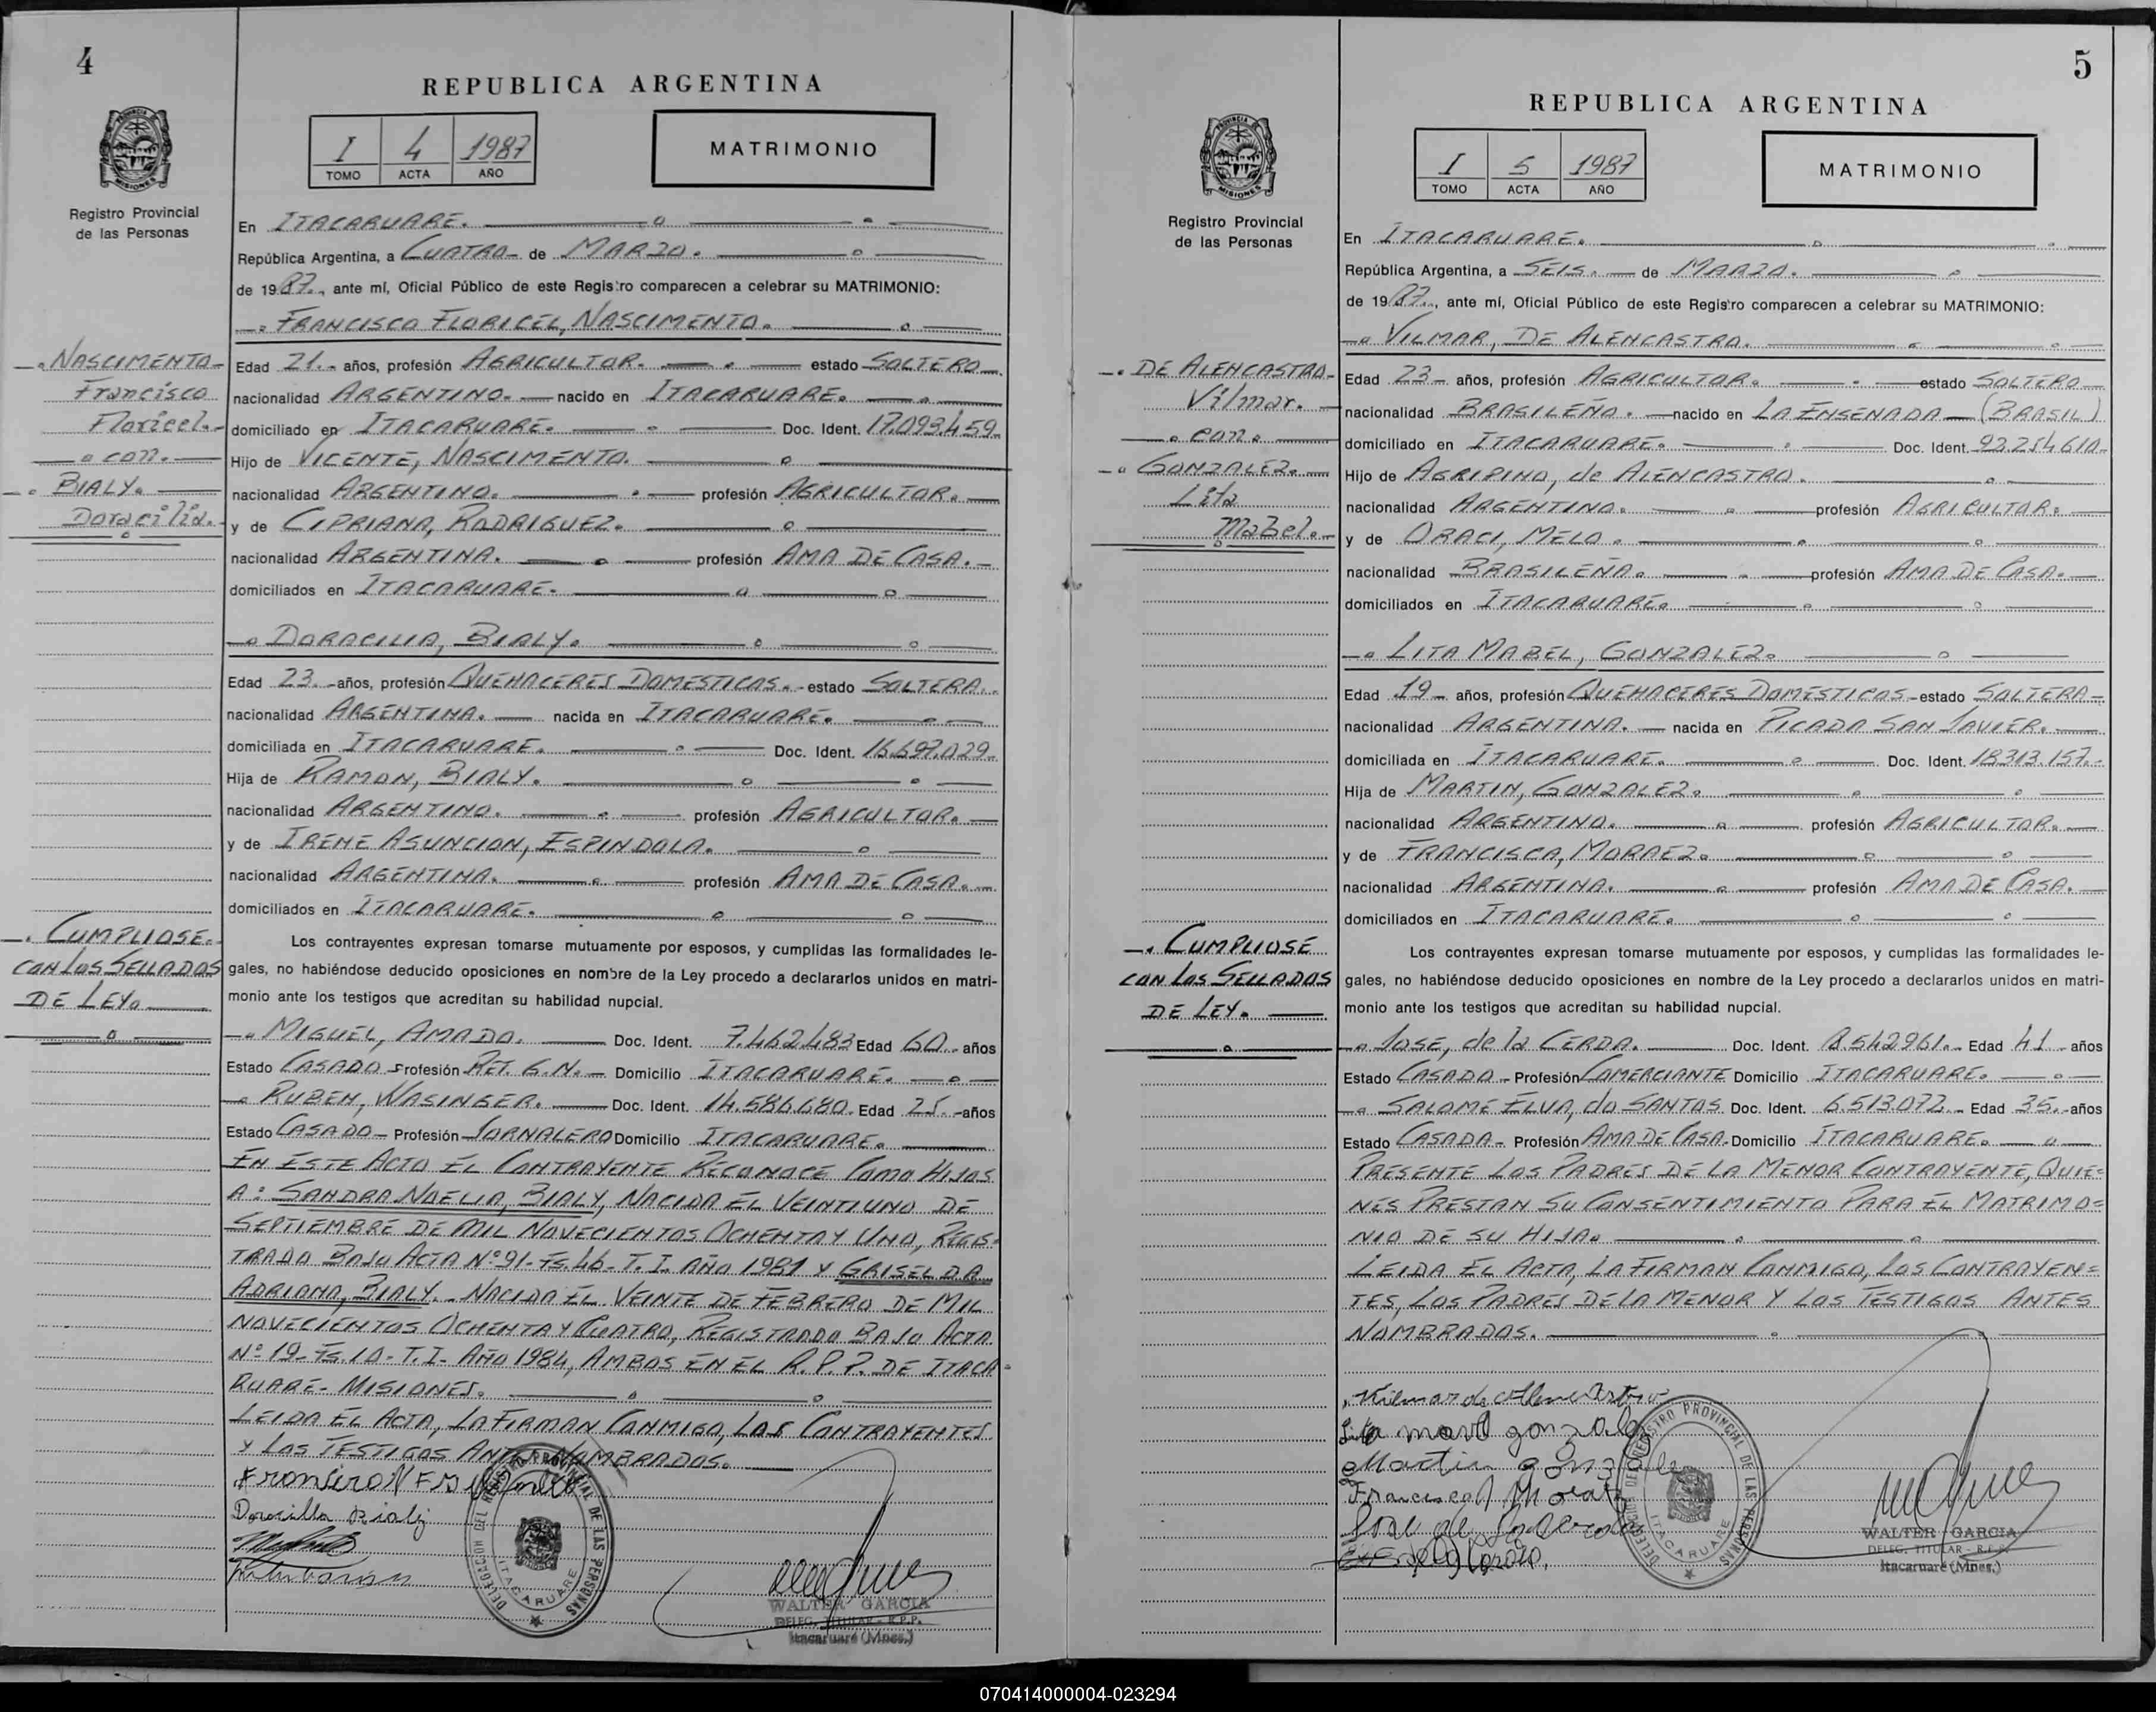 4
REPUBLICA ARGENTINA
I 4 1987
TOMO ACTA AÑO
MATRIMONIO
PROVINCIA DE MISIONES
Registro Provincial
de las Personas
En ITACARUARE.
República Argentina, a CUATRO- de MARZO.
de 1987., ante mí, Oficial Público de este Registro comparecen a celebrar su MATRIMONIO:
FRANCISCO FLORICEL, NASCIMENTO.
NASCIMENTO
Francisco
Floricel.-
con.
BIALY.
Doracilia.
Edad 21.- años, profesión AGRICULTOR. estado SOLTERO
nacionalidad ARGENTINO. nacido en ITACARUARE.
domiciliado en ITACARUARE. Doc. Ident. 17.093.459.
Hijo de VICENTE, NASCIMENTO.
nacionalidad ARGENTINO. profesión AGRICULTOR.
y de CIPRIANA, RODRIGUEZ.
nacionalidad ARGENTINA. profesión AMA DE CASA.-
domiciliados en ITACARUARE.
DORACILIA, BIALY.
Edad 23.- años, profesión QUEHACERES DOMESTICOS.- estado SOLTERA.
nacionalidad ARGENTINA. nacida en ITACARUARE.
domiciliada en ITACARUARE. Doc. Ident. 16.697.029.
Hija de RAMON, BIALY.
nacionalidad ARGENTINO. profesión AGRICULTOR.
y de IRENE ASUNCION, ESPINDOLA.
nacionalidad ARGENTINA. profesión AMA DE CASA.
domiciliados en ITACARUARE.
CUMPLIOSE
CON LOS SELLADOS
DE LEY.
Los contrayentes expresan tomarse mutuamente por esposos, y cumplidas las formalidades le-
gales, no habiéndose deducido oposiciones en nombre de la Ley procedo a declararlos unidos en matri-
monio ante los testigos que acreditan su habilidad nupcial.
MIGUEL, AMADO. Doc. Ident. 7.462.483 Edad 60.- años
Estado CASADO - Profesión RET. G.N.- Domicilio ITACARUARE.
RUBEN, WASINGER. Doc. Ident. 14.586.680. Edad 25.- años
Estado CASADO - Profesión JORNALERO Domicilio ITACARUARE.
EN ESTE ACTO EL CONTRAYENTE RECONOCE COMO HIJOS
A: SANDRA NOELIA, BIALY, NACIDA EL VEINTIUNO DE
SEPTIEMBRE DE MIL NOVECIENTOS OCHENTA Y UNO, REGIS-
TRADA BAJO ACTA Nº 91- Fs. 46- T. I. AÑO 1981 Y GRISELDA
ADRIANA, BIALY.- NACIDA EL VEINTE DE FEBRERO DE MIL
NOVECIENTOS OCHENTA Y CUATRO, REGISTRADO BAJO ACTA
Nº 19- Fs. 10- T. I- AÑO 1984, AMBOS EN EL R.P.P. DE ITACA=
RUARE- MISIONES.
LEIDA EL ACTA, LA FIRMAN CONMIGO, LOS CONTRAYENTES
Y LOS TESTIGOS ANTES NOMBRADOS.
Doracilla Bialy
DELEGACION DEL REGISTRO PROVINCIAL DE LAS PERSONAS
ITACARUARE
WALTER GARCIA
DELEG. TITULAR - R.P.P.
Itacaruaré (Mnes.)
5
REPUBLICA ARGENTINA
I 5 1987
TOMO ACTA AÑO
MATRIMONIO
PROVINCIA DE MISIONES
Registro Provincial
de las Personas
En ITACARUARE.
República Argentina, a SEIS.- de MARZO.
de 1987., ante mí, Oficial Público de este Registro comparecen a celebrar su MATRIMONIO:
VILMAR, DE ALENCASTRO.
DE ALENCASTRO-
Vilmar.
con.
GONZALEZ.
Lita
Mabel.
Edad 23- años, profesión AGRICULTOR. estado SOLTERO
nacionalidad BRASILEÑO. nacido en LA ENSENADA - (BRASIL)
domiciliado en ITACARUARE. Doc. Ident. 92.254.610.
Hijo de AGRIPINO, de ALENCASTRO.
nacionalidad ARGENTINO. profesión AGRICULTOR.
y de ORACI, MELO.
nacionalidad BRASILEÑA. profesión AMA DE CASA.
domiciliados en ITACARUARE.
LITA MABEL, GONZALEZ.
Edad 19- años, profesión QUEHACERES DOMESTICOS- estado SOLTERA=
nacionalidad ARGENTINA. nacida en PICADA SAN JAVIER.
domiciliada en ITACARUARE. Doc. Ident. 18.313.157.-
Hija de MARTIN, GONZALEZ.
nacionalidad ARGENTINO. profesión AGRICULTOR.
y de FRANCISCA, MORAEZ.
nacionalidad ARGENTINA. profesión AMA DE CASA.
domiciliados en ITACARUARE.
CUMPLIOSE
CON LOS SELLADOS
DE LEY.
Los contrayentes expresan tomarse mutuamente por esposos, y cumplidas las formalidades le-
gales, no habiéndose deducido oposiciones en nombre de la Ley procedo a declararlos unidos en matri-
monio ante los testigos que acreditan su habilidad nupcial.
JOSE, de la CERDA. Doc. Ident. 8.542.961.- Edad 41 - años
Estado CASADO - Profesión COMERCIANTE Domicilio ITACARUARE.
SALOME ELVA, do SANTOS Doc. Ident. 6.513.072.- Edad 35.- años
Estado CASADA- Profesión AMA DE CASA. Domicilio ITACARUARE.
PRESENTE LOS PADRES DE LA MENOR CONTRAYENTE, QUIE=
NES PRESTAN SU CONSENTIMIENTO PARA EL MATRIMO=
NIO DE SU HIJA.
LEIDA EL ACTA, LA FIRMAN CONMIGO, LOS CONTRAYEN=
TES, LOS PADRES DE LA MENOR Y LOS TESTIGOS ANTES
NOMBRADOS.
Martin
DELEGACION DEL REGISTRO PROVINCIAL DE LAS PERSONAS
ITACARUARE
WALTER GARCIA
DELEG. TITULAR - R.P.P.
Itacaruaré (Mnes.)
070414000004-023294